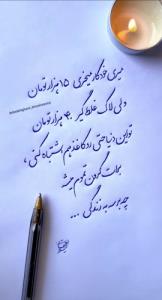 میری خودکار میخری ۱۵ هزار تومان
ولی لاک غلط گیر ۴۰ هزار تومان
تواین دنیا حتی رو کاغذ هم اشتباه کنی ،
برات گرون تموم میشه
چه برسه به زندگی ...